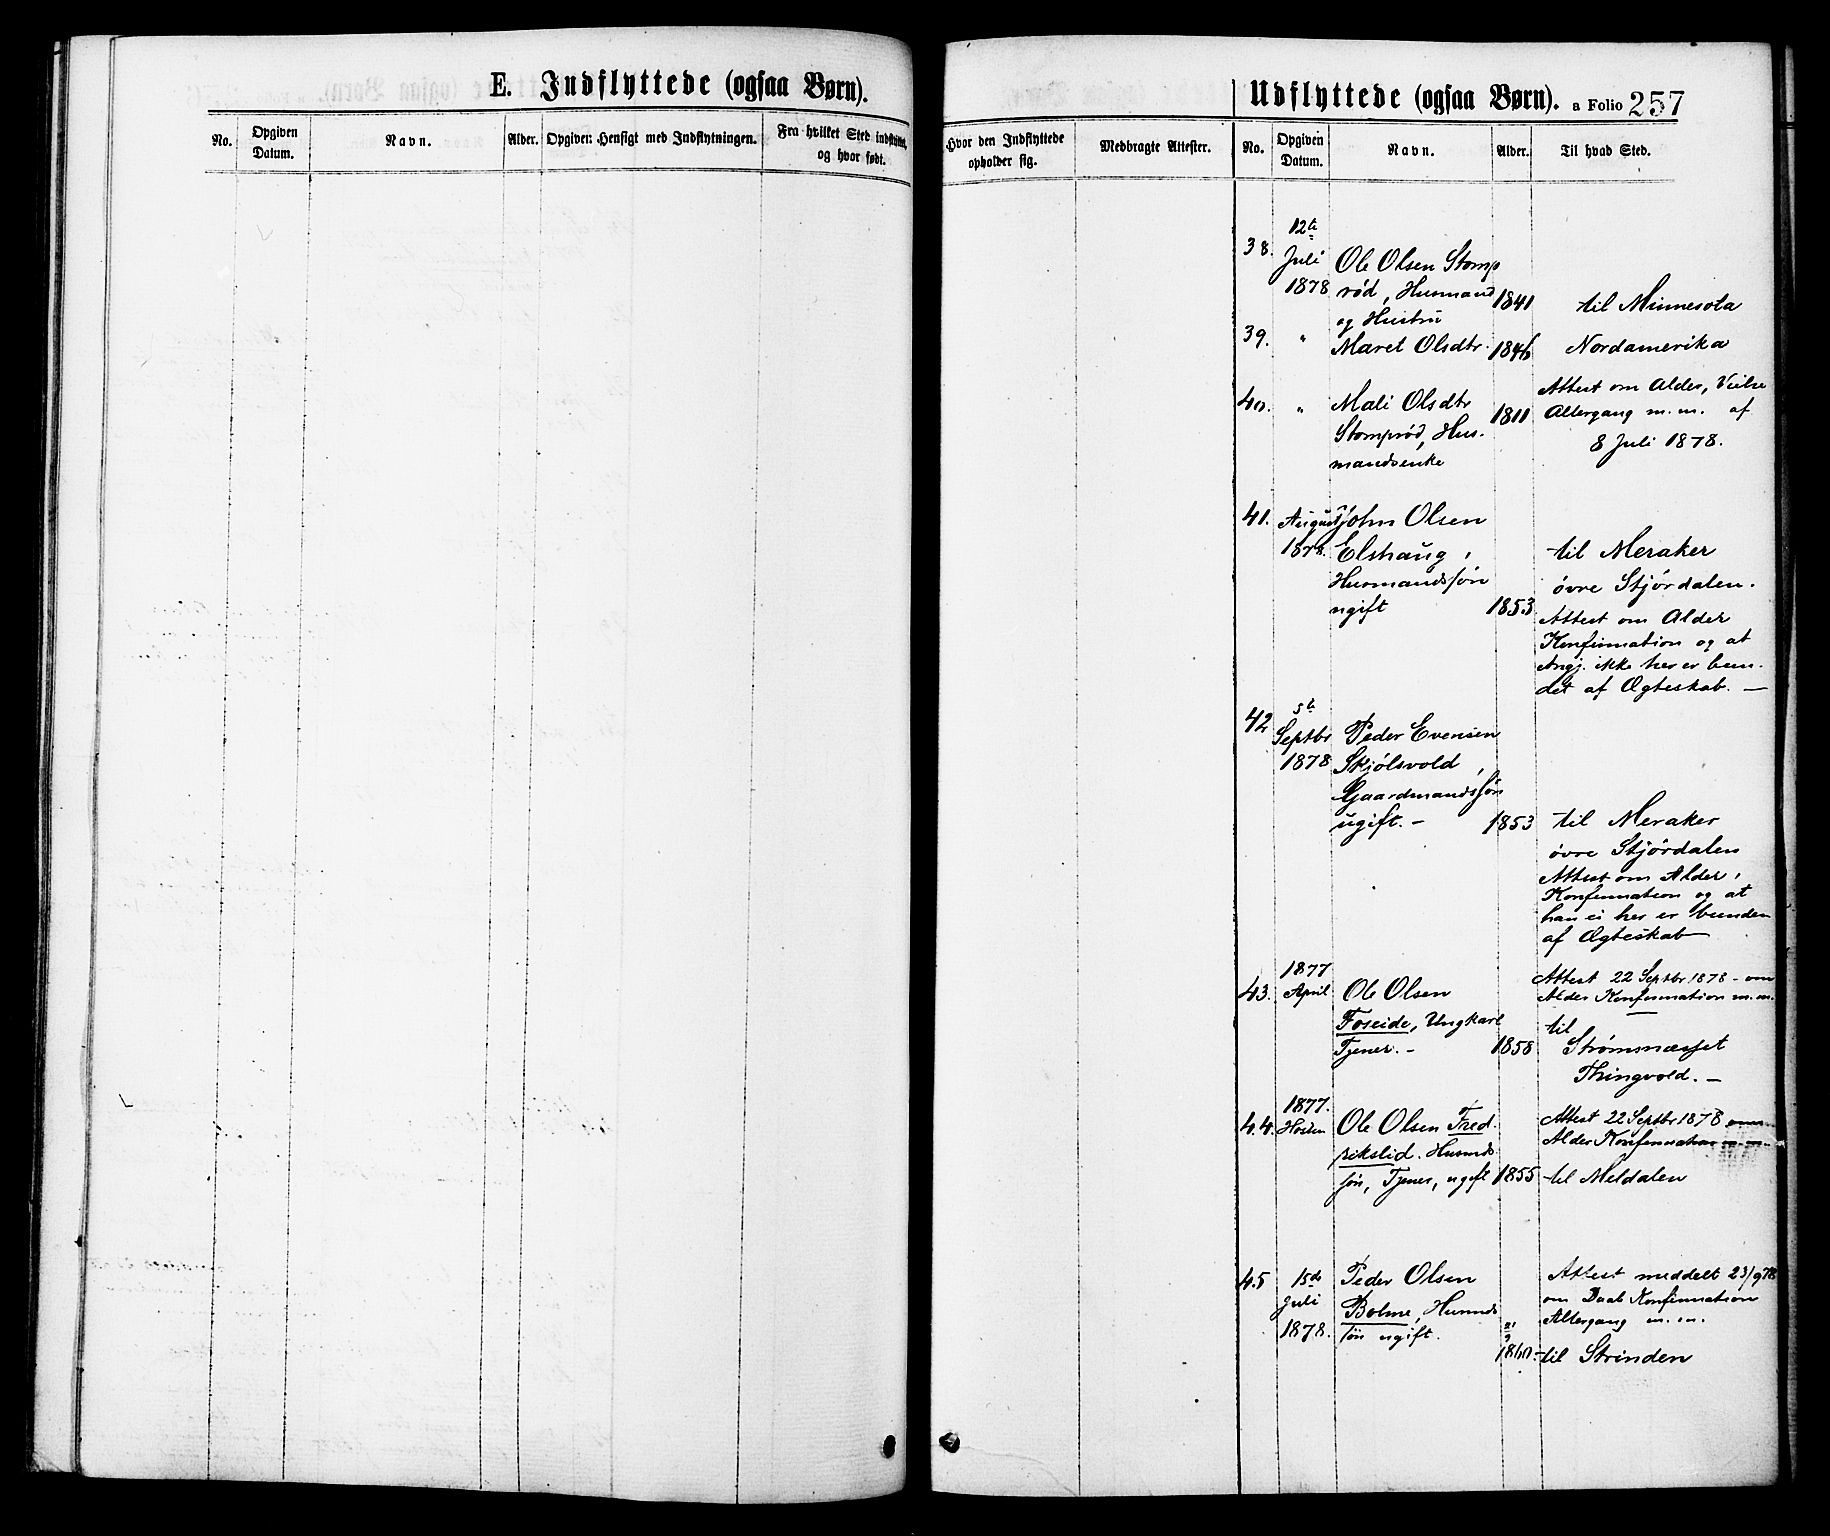 E. Indflyttede (ogsaa Børn).
No.
Opgiven
Datum.
Navn.
Alder.
Opgiven Hensigt med Indflytningen.
Fra hvilket Sted indflyttet,
og hvor født.
Udflyttede (ogsaa Børn). a Folio 257
Hvor den Indflyttede
opholder sig.
Medbragte Attester.
No.
Opgiven
Datum.
Navn.
Alder.
Til hvad Sted.
38.
12te
Juli
1878
Ole Olsen Stomp
rød, Husmand
og Hustru
1841
til Minnesota
39.
"
Maret Olsdtr.
1846
Nordamerika
40.
"
Mali Olsdtr
Stomprød, Hus-
mandsenke
1811
Attest om Alder, Vielse
Altergang m.m. af
8 Juli 1878.
41.
August
1878.
John Olsen
Elshaug,
Husmandssøn
ugift
1853
til Meraker
övre Stjørdalen.
Attest om Alder
Konfirmation og at
Angj. ikke her er bun-
det af Ægteskab. —
42
5te
Septbr
1878
Peder Evensen
Skjølsvold,
Gaardmandssøn
ugift. -
1853
til Meraker
övre Stjørdalen
Attest om Alder,
Konfirmation og at
han ei her er bunden
af Ægteskab —
43.
1877
April
Ole Olsen
Foseide, Ungkarl
Tjener. -
1858
Attest 22 Septbr 1878 - om
Alder Konfirmation m.m.
til
Strømsnæsset
Thingvold. —
44.
1877.
Høsten
Ole Olsen Fred-
rikslid. Husmds
søn, Tjener, ugift
1855
Attest 22 Septbr 1878 om
Alder Konfirmation m.m.
til Meldalen
45
15de
Juli
1878.
Peder Olsen
Bolme, Husmds
søn ugift.
1860
Attest meddelt 23/9 78
om Daab Konfirmation
Altergang m.m.
til Strinden